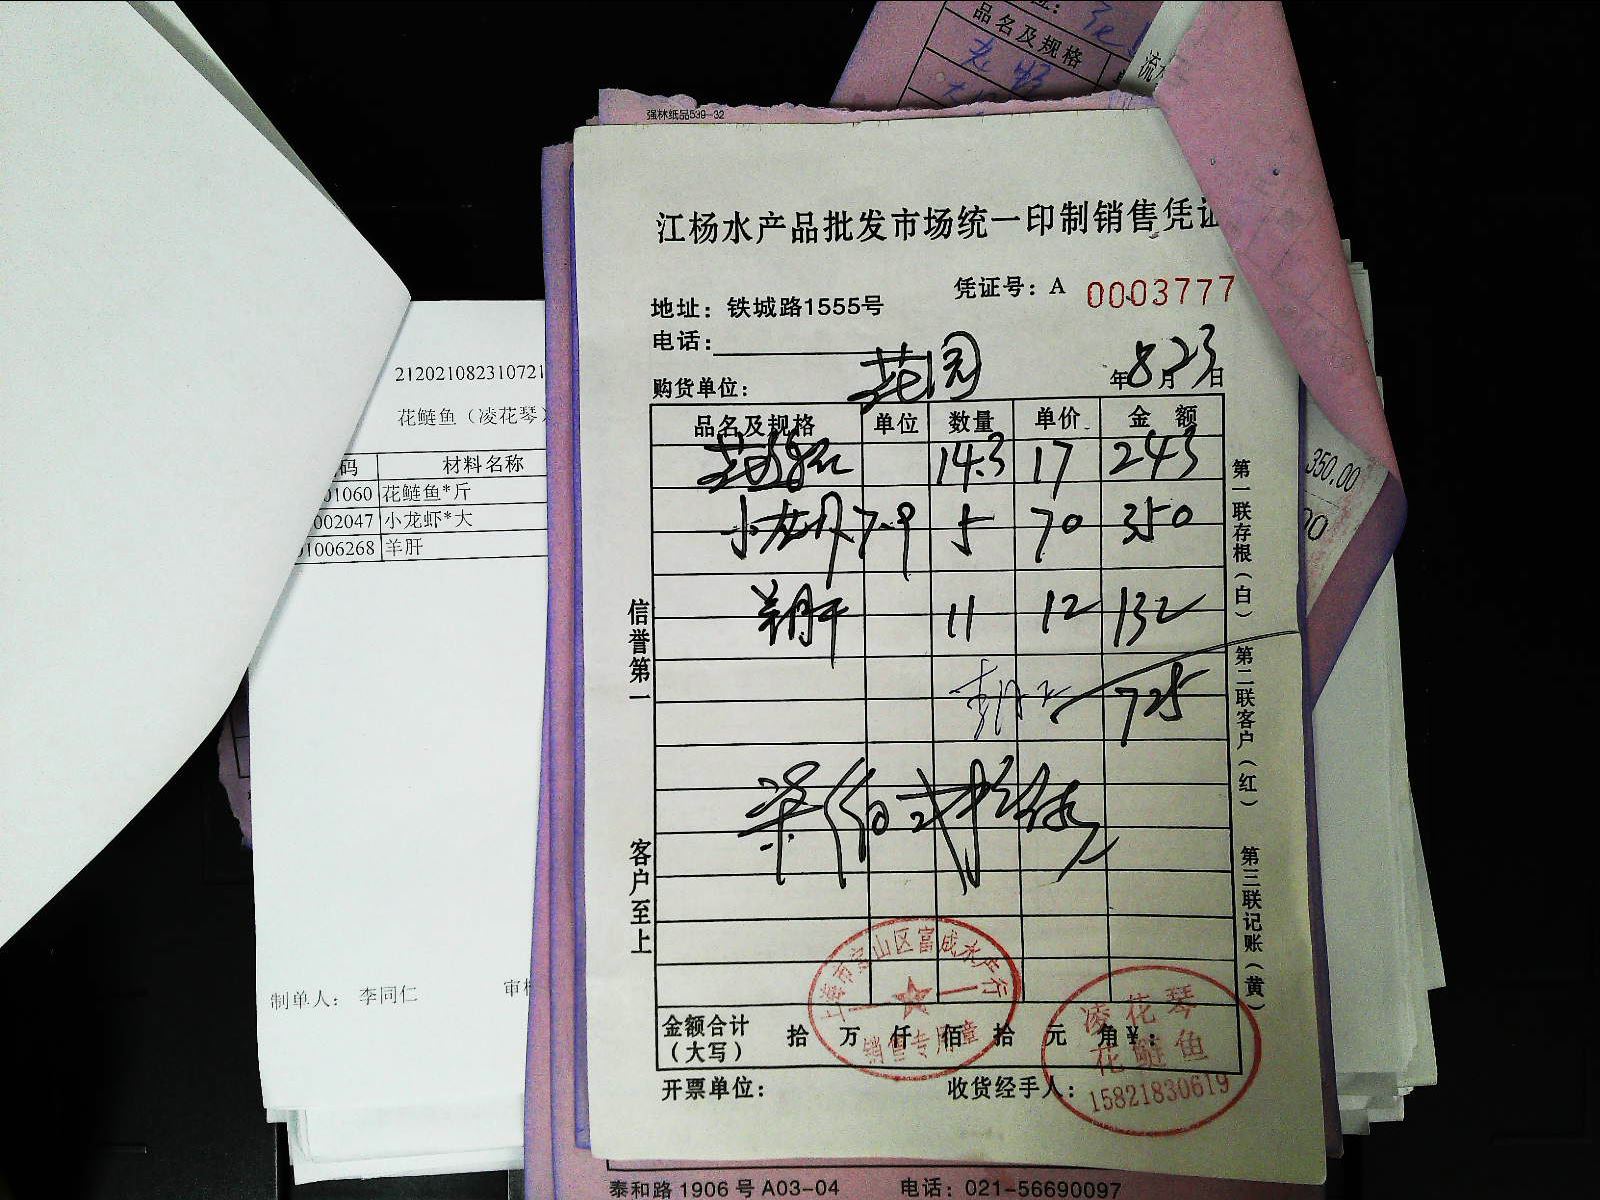 品名及规格
强林纸品539-32
江杨水产品批发市场统一印制销售凭证
凭证号：A 0003777
地址：铁城路1555号
电话：
购货单位： 花园 年8月23日
品名及规格 单位 数量 单价 金额
花鲢 14.3 17 243
小龙虾 7-9 5 70 350
羊肝 11 12 132
725
信誉第一
客户至上
第一联存根（白）
第二联客户（红）
第三联记账（黄）
上海市宝山区富成水产行
销售专用章
金额合计（大写） 拾 万 仟 佰 拾 元 角 ¥：
凌花琴
花鲢鱼
15821830619
开票单位： 收货经手人：
泰和路1906号A03-04 电话：021-56690097
212021082310721
花鲢鱼（凌花琴）
码 材料名称
01060 花鲢鱼*斤
002047 小龙虾*大
01006268 羊肝
制单人： 李同仁 审
350.00